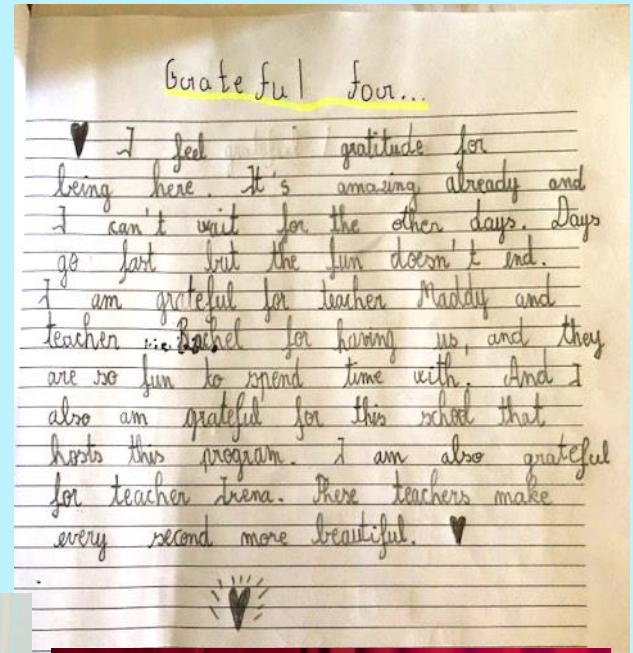 Grateful for...
I feel gratitude for
being here. It's amazing already and
I can't wait for the other days. Days
go fast but the fun doesn't end.
I am grateful for teacher Maddy and
teacher Rachel for having us, and they
are so fun to spend time with. And I
also am grateful for this school that
hosts this program. I am also grateful
for teacher Irena. These teachers make
every second more beautiful.